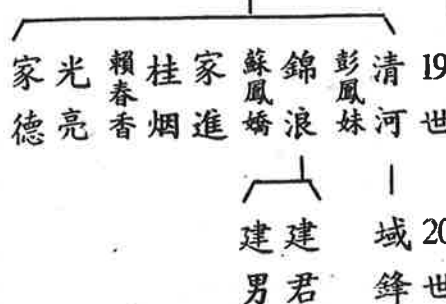 19世
清河
彭鳳妹
錦浪
蘇鳳嬌
家進
桂烟
賴春香
光亮
家德
20世
域鋒
建君
建男